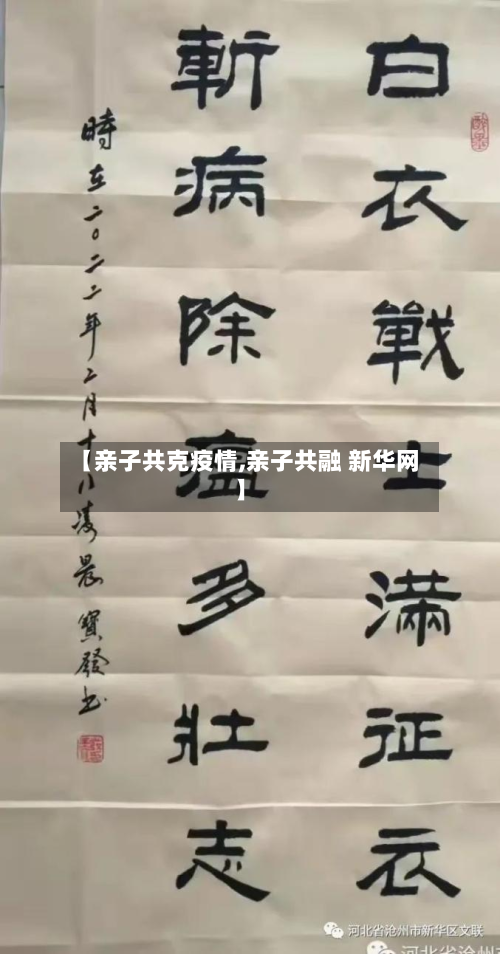 白衣戰士满征衣
斬病除瘟多壯志
時在二〇二二年二月十八凌晨寳發书
【亲子共克疫情,亲子共融 新华网
】
河北省沧州市新华区文联
河北省沧州市